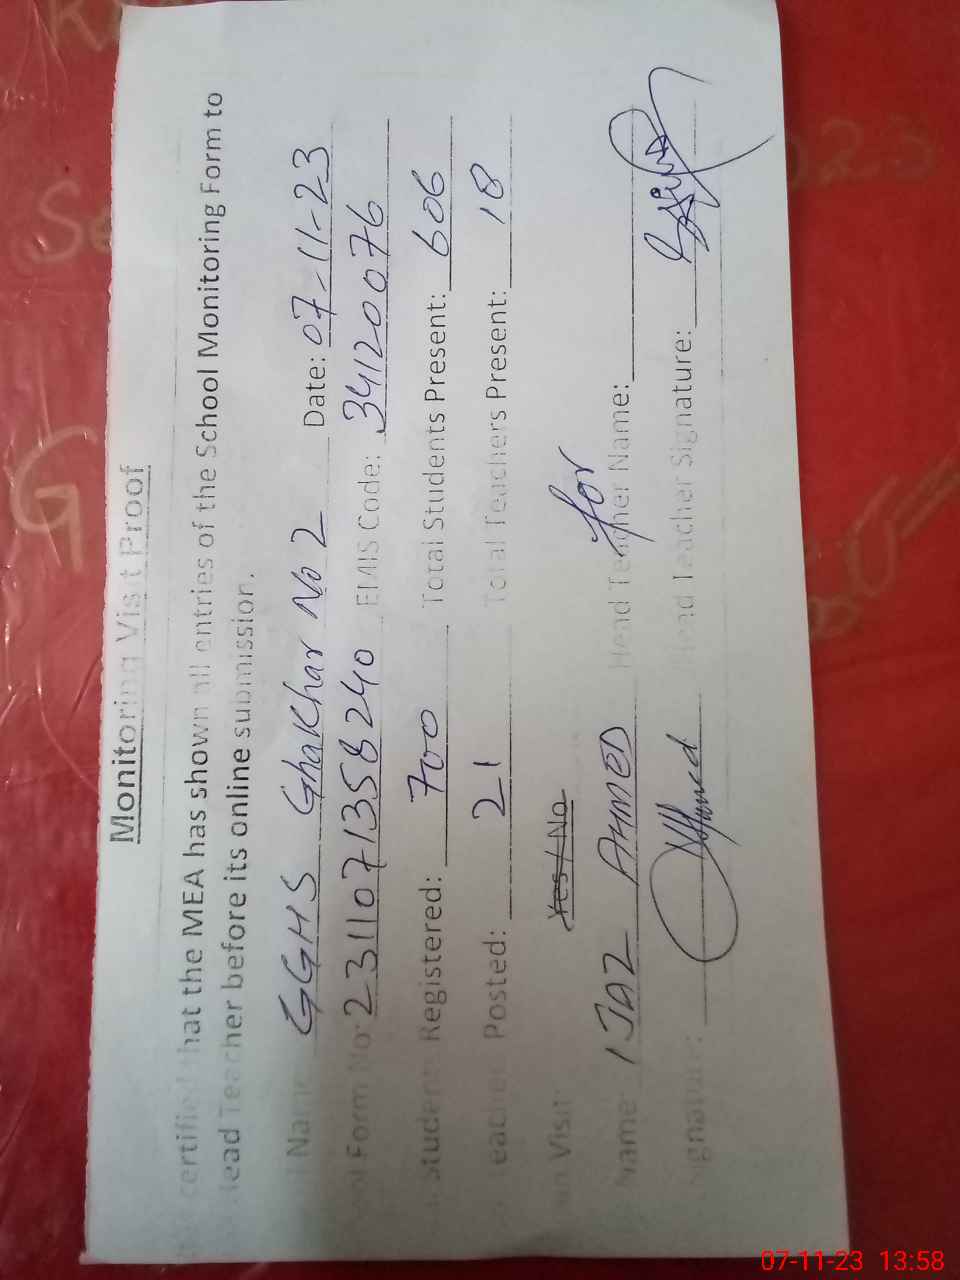 Monitoring Visit Proof
certified that the MEA has shown all entries of the School Monitoring Form to
Head Teacher before its online submission.
Name GGHS Ghakhar No 2 Date: 07-11-23
Form No: 2311071358240 EMIS Code: 34120076
Students Registered: 700 Total Students Present: 606
Teacher Posted: 21 Total Teachers Present: 18
Visit Yes / No
for
Name: IJAZ AHMED Head Teacher Name:
Signature: Ahmed Head Teacher Signature:
07-11-23 13:58